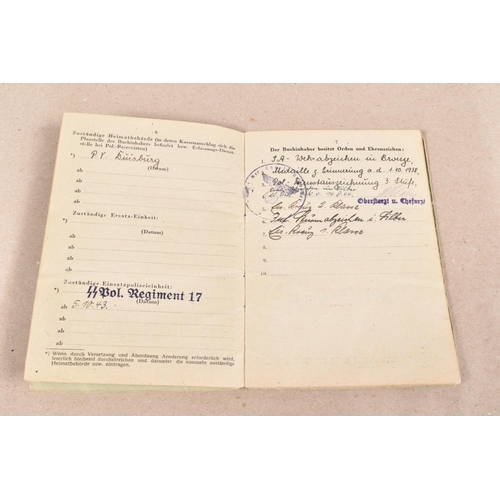 6
Zuständige Heimatbehörde (in deren Kassenanschlag sich die
Planstelle des Buchinhabers befindet bzw. Erfassungs-Dienst-
stelle bei Pol.-Reservisten)
*) P.V. Duisburg
ab (Datum)
ab
ab
ab
Zuständige Ersatz-Einheit:
*)
ab (Datum)
ab
ab
ab
Zuständige Einsatzpolizeieinheit:
*) SS Pol. Regiment 17
ab 5.10.43. (Datum)
ab
ab
ab
*) Wenn durch Versetzung und Abordnung Aenderung erforderlich wird,
leserlich bleibend durchstreichen und darunter die nunmehr zuständige
Heimatbehörde usw. eintragen.
7
Der Buchinhaber besitzt Orden und Ehrenzeichen:
1. S.A.- Wehrabzeichen in Bronze,
Medaille z. Erinnerung a. d. 1.10.1938,
Pol.- Dienstauszeichnung 3. Stufe,
Oberstarzt u. Chefarzt
Eis. Kreuz 2. Klasse
Inf. Sturmabzeichen i. Silber
7. Eis. Kreuz 1. Klasse
8.
9.
10.